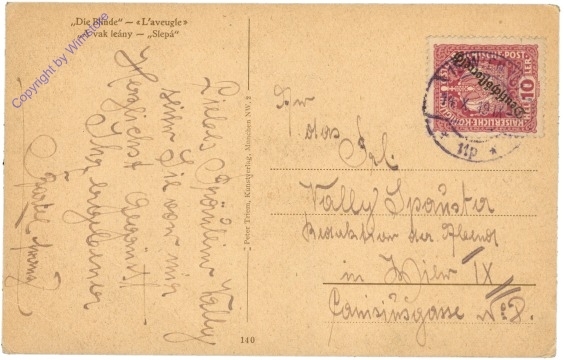 „Die Blinde“ — «L'aveugle»
vak leány — „Slepá“
Copyright by
Liebes Fräulein Vally
seien Sie von mir
Herzlichst gegrüßt
Ihr ergebener
Peter Triem, Kunstverlag, Munchen NW. 2
140
KAISERLICHE KÖNIGL
10
Deutschösterreich
11p
An
das Frl.
Vally
Redaktion der Abend
in Wien IX
Canisiusgasse